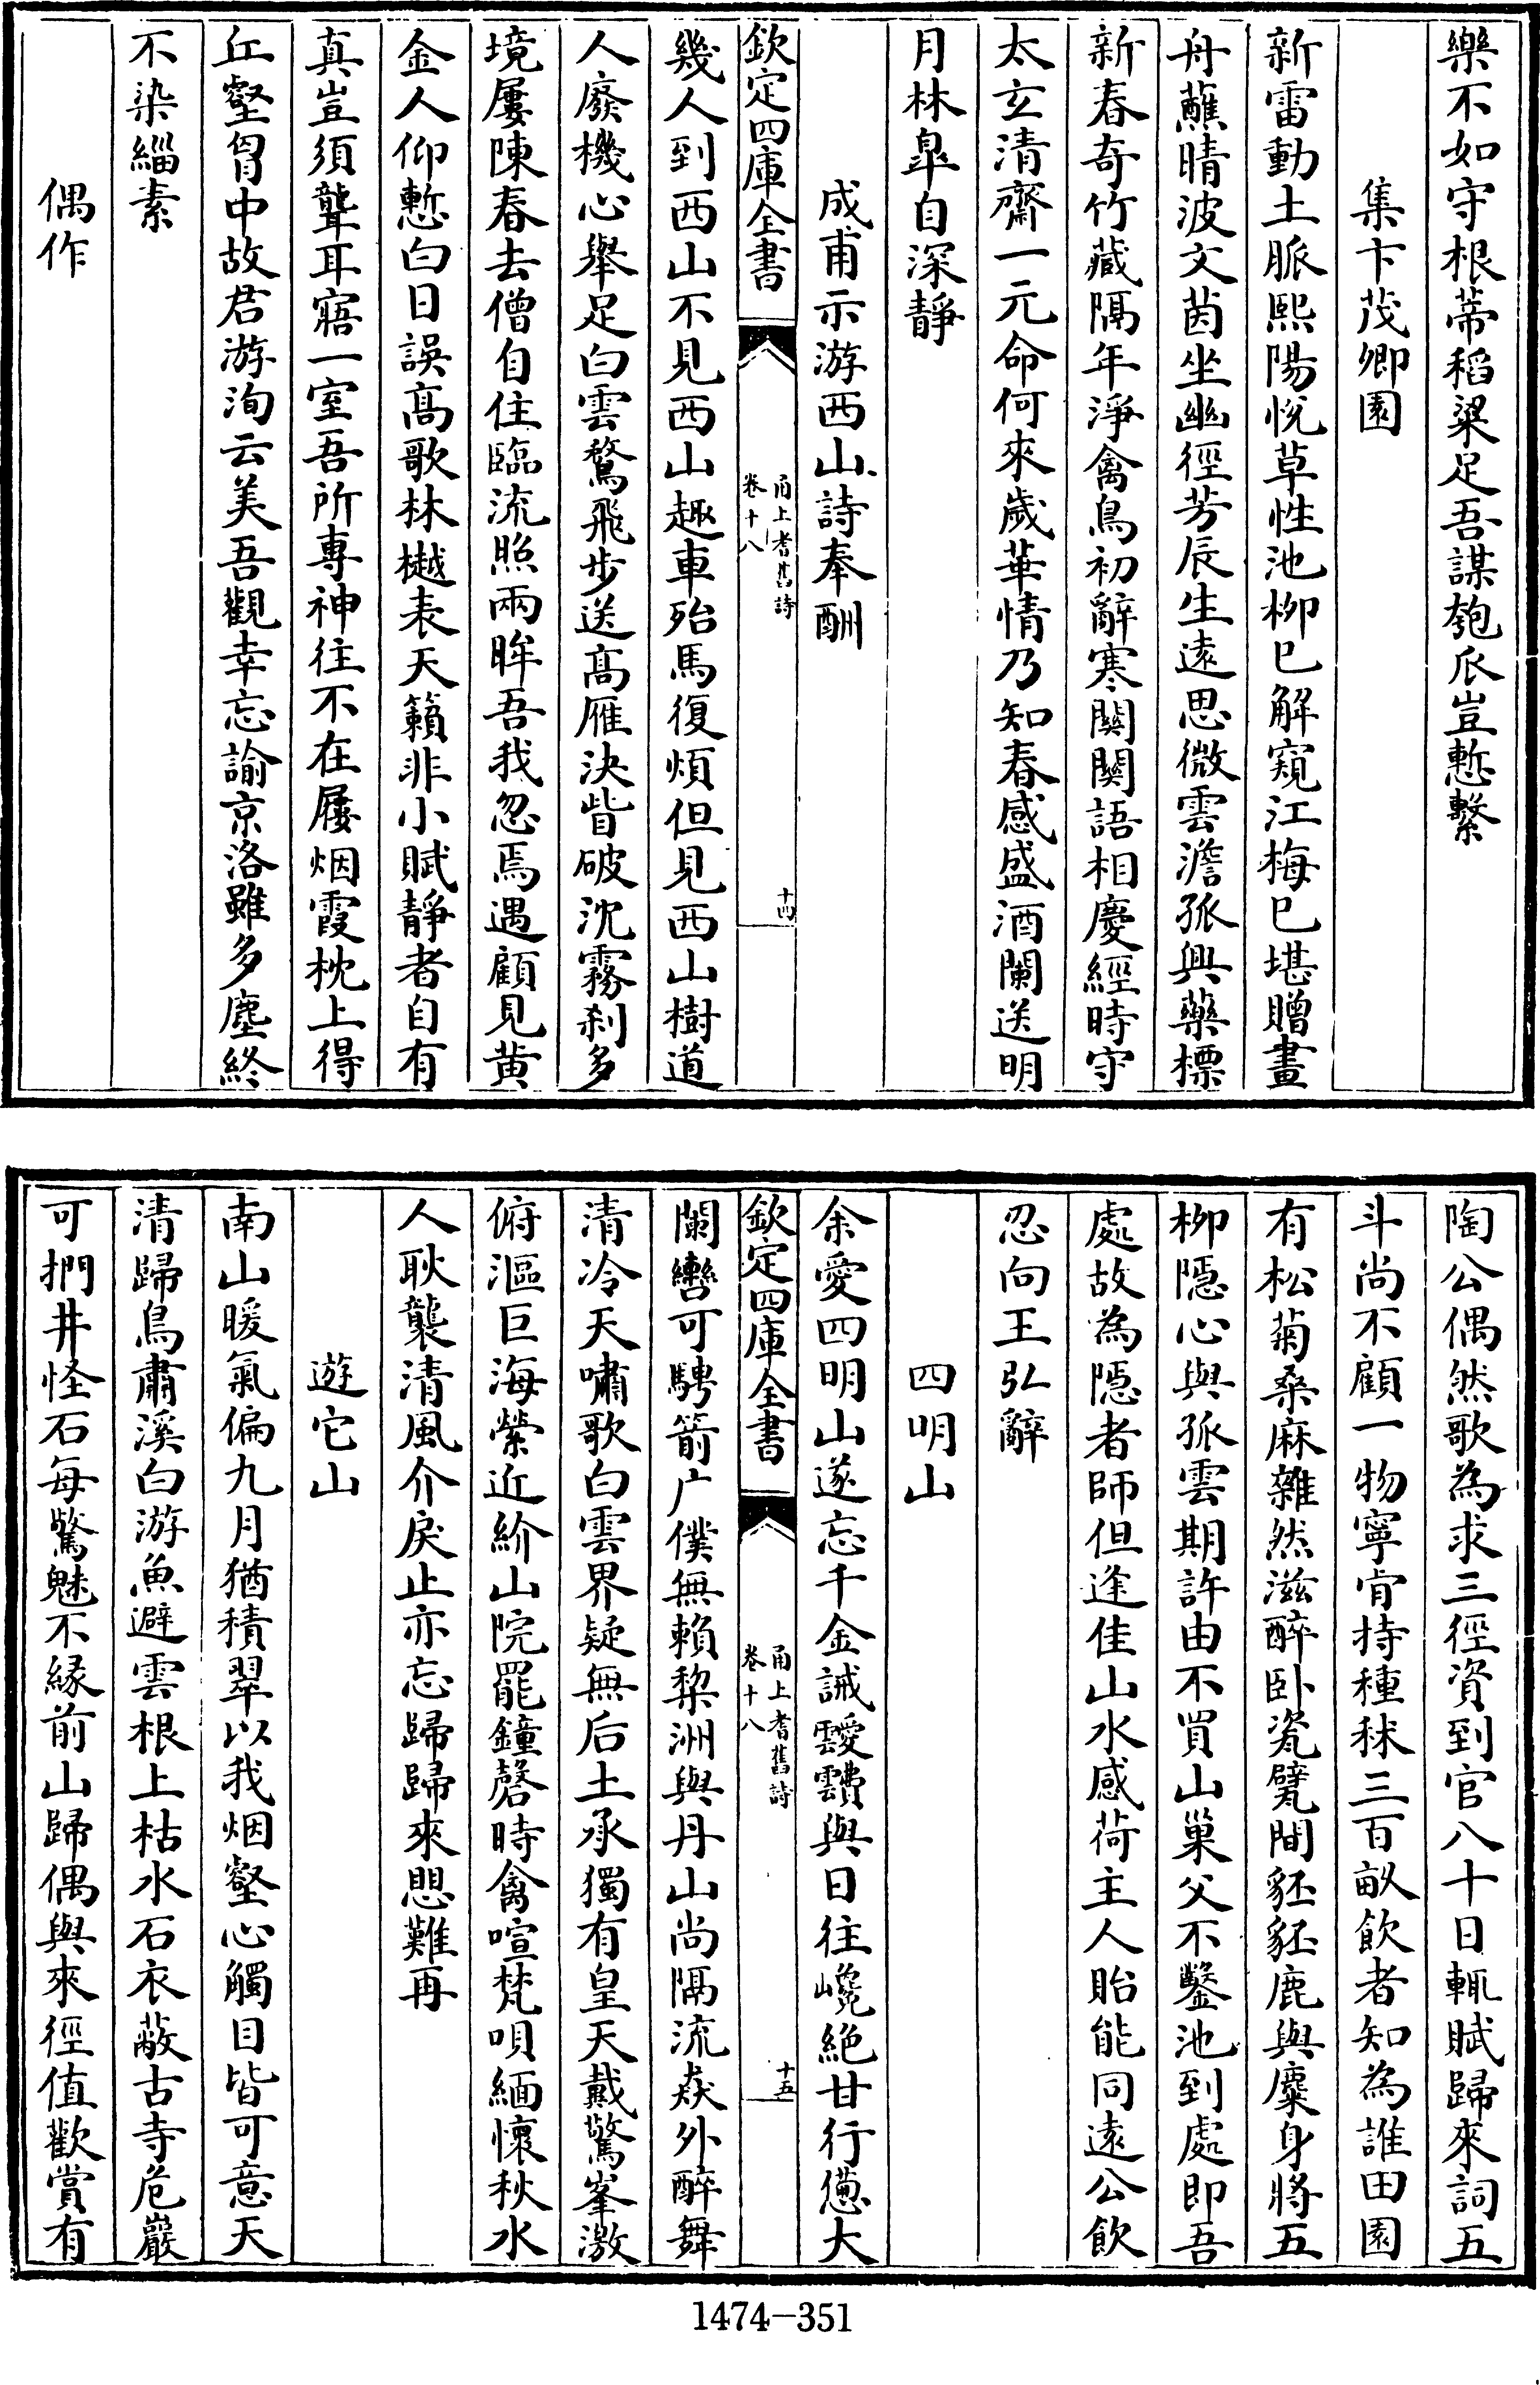 樂不如守根蒂稻粱足吾謀匏瓜豈慙繫
集卞茂卿園
新雷動土脈熙陽悅草性池柳已解窺江梅已堪贈畫
舟蘸晴波文茵坐幽徑芳辰生遠思微雲澹孤興藥標
新春奇竹藏隔年淨禽鳥初辭寒関関語相慶經時守
太玄清齋一元命何來歲華情乃知春感盛酒闌送明
月林臯自深靜
成甫示游西山詩奉酬
欽定四庫全書
甬上耆舊詩
卷十八
十四
幾人到西山不見西山趣車殆馬復煩但見西山樹道
人廢機心舉足白雲鶩飛步送高雁決眥破沈霧刹多
境屢陳春去僧自住臨流照兩眸吾我忽焉遇顧見黄
金人仰慙白日誤高歌林樾表天籟非小賦靜者自有
真豈須聾耳寤一室吾所專神往不在屨烟霞枕上得
丘壑胷中故君游洵云美吾觀幸忘諭京洛雖多塵終
不染緇素
偶作
陶公偶然歌為求三徑資到官八十日輒賦歸來詞五
斗尚不顧一物寧肯持種秫三百畝飲者知為誰田園
有松菊桑麻雜然滋醉卧瓷甓間豾豾鹿與麋身將五
柳隱心與孤雲期許由不買山巢父不鑿池到處即吾
處故為隱者師但逢佳山水感荷主人貽能同遠公飲
忍向王弘辭
四明山
余愛四明山遂忘千金誡靉靅與日往巉絶甘行憊大
欽定四庫全書
甬上耆舊詩
卷十八
十五
闌轡可騁箭广僕無賴棃洲與丹山尚隔流猋外醉舞
清冷天嘯歌白雲界疑無后土承獨有皇天戴驚峯激
俯漚巨海縈近紒山院罷鐘磬時禽喧梵唄緬懷秋水
人耿襲清風介戾止亦忘歸歸來愳難再
遊它山
南山暖氣偏九月猶積翠以我烟壑心觸目皆可意天
清歸鳥肅溪白游魚避雲根上枯水石衣蔽古寺危巖
可捫井怪石每驚魅不緣前山歸偶與來徑值歡賞有
1474-351